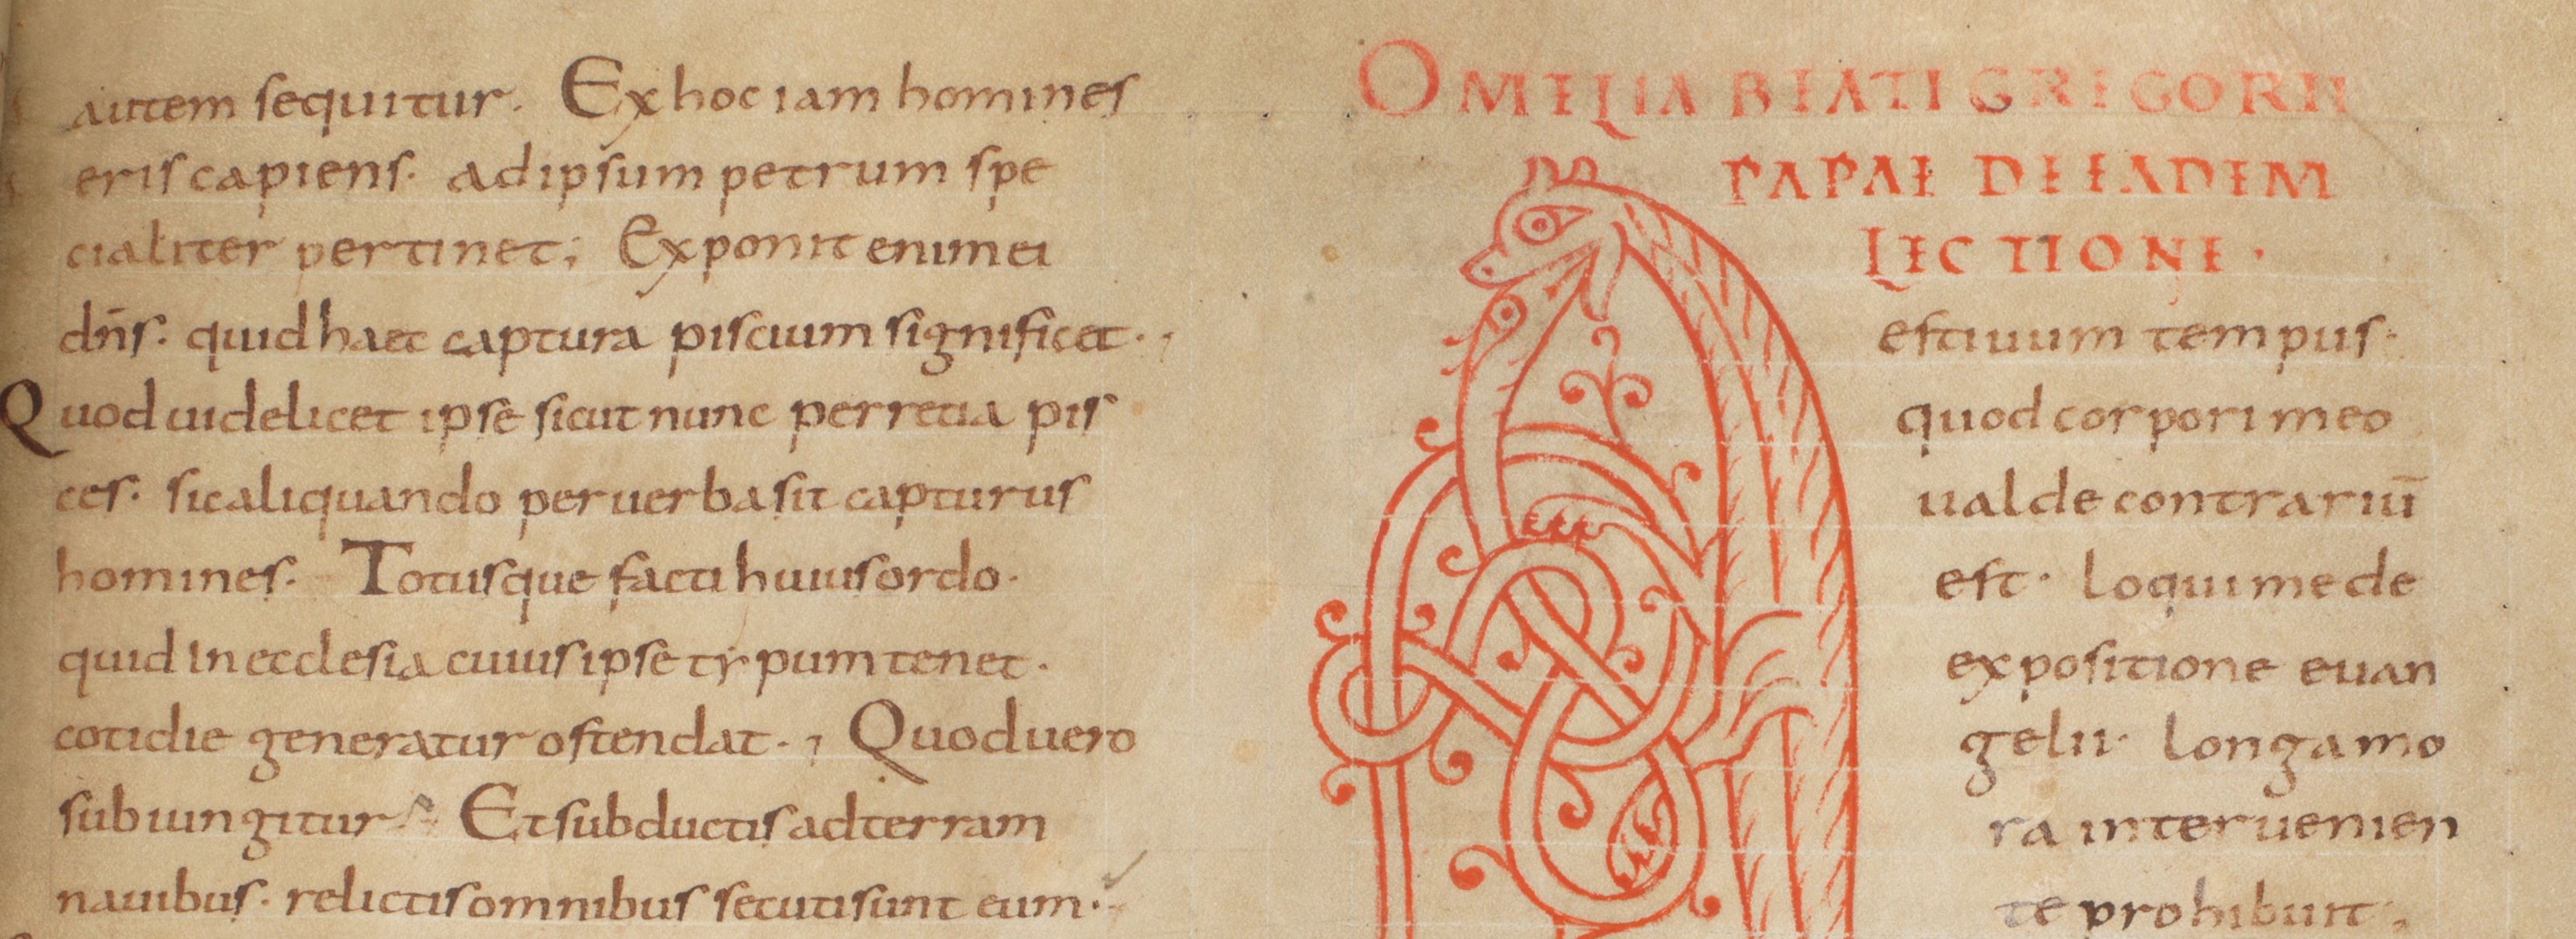 autem sequitur. Ex hoc iam homines
eris capiens. ad ipsum petrum spe
cialiter pertinet; Exponit enim ei
dn̄s. quid haec captura piscium significet.,
Quod uidelicet ipse sicut nunc per retia pis
ces. sic aliquando per uerba sit capturus
homines. Totusque facti huius ordo.
quid in ecclesia cuius ipse typum tenet.
cotidie generatur ostendat., Quod uero
subiungitur Et subductis ad terram
nauibus. relictis omnibus secuti sunt eum.
OMELIA BEATI GREGORII
PAPAE DE EADEM
LECTIONE.
A estiuum tempus.
quod corpori meo
ualde contrariū
est. loqui me de
expositione euan
gelii. longa mo
ra interuenien
te prohibuit,